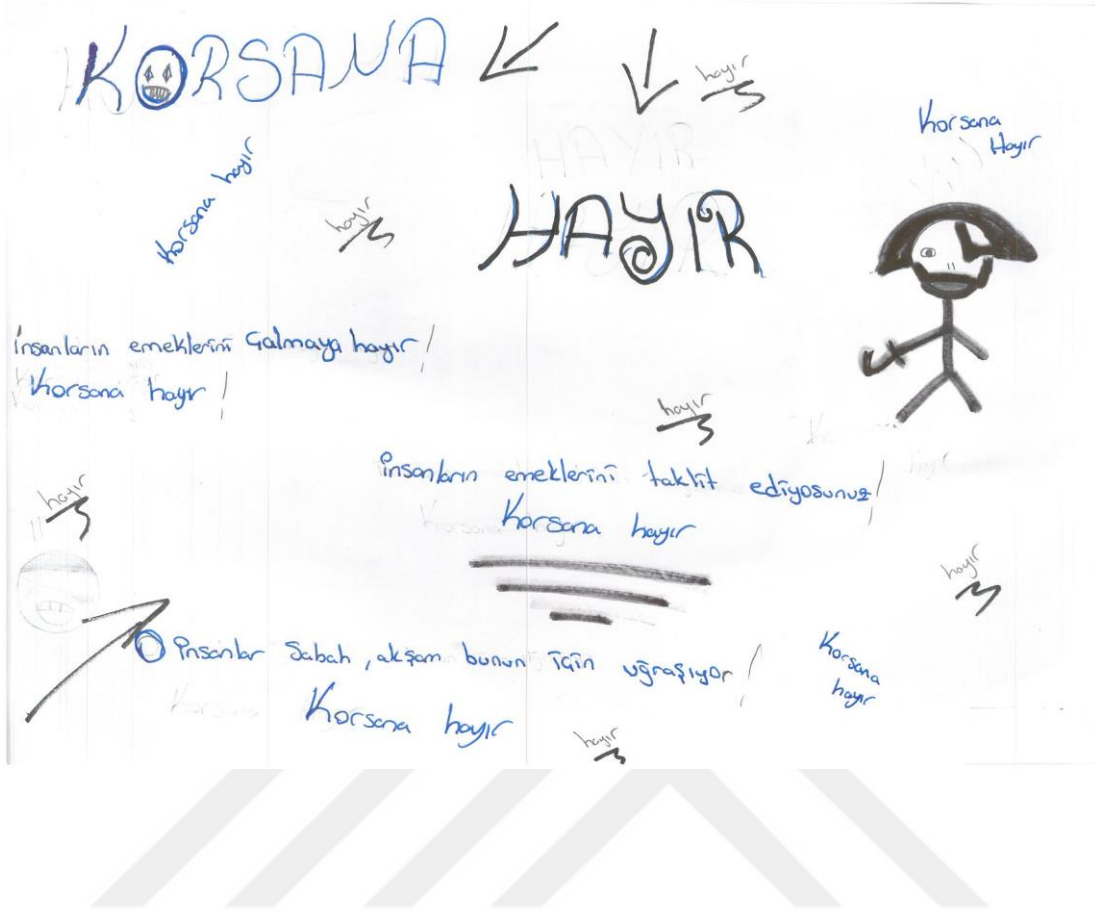 KORSANA
hayır
Korsana
Hayır
Korsana hayır
hayır
HAYIR
HAYIR
insanların emeklerini Çalmaya hayır!
Korsana hayır!
hayır
insanların emeklerini taklit ediyosunuz!
Korsana hayır
hayır
hayır
insanlar Sabah, akşam bunun için uğraşıyor!
Korsana
hayır
Korsana hayır
hayır